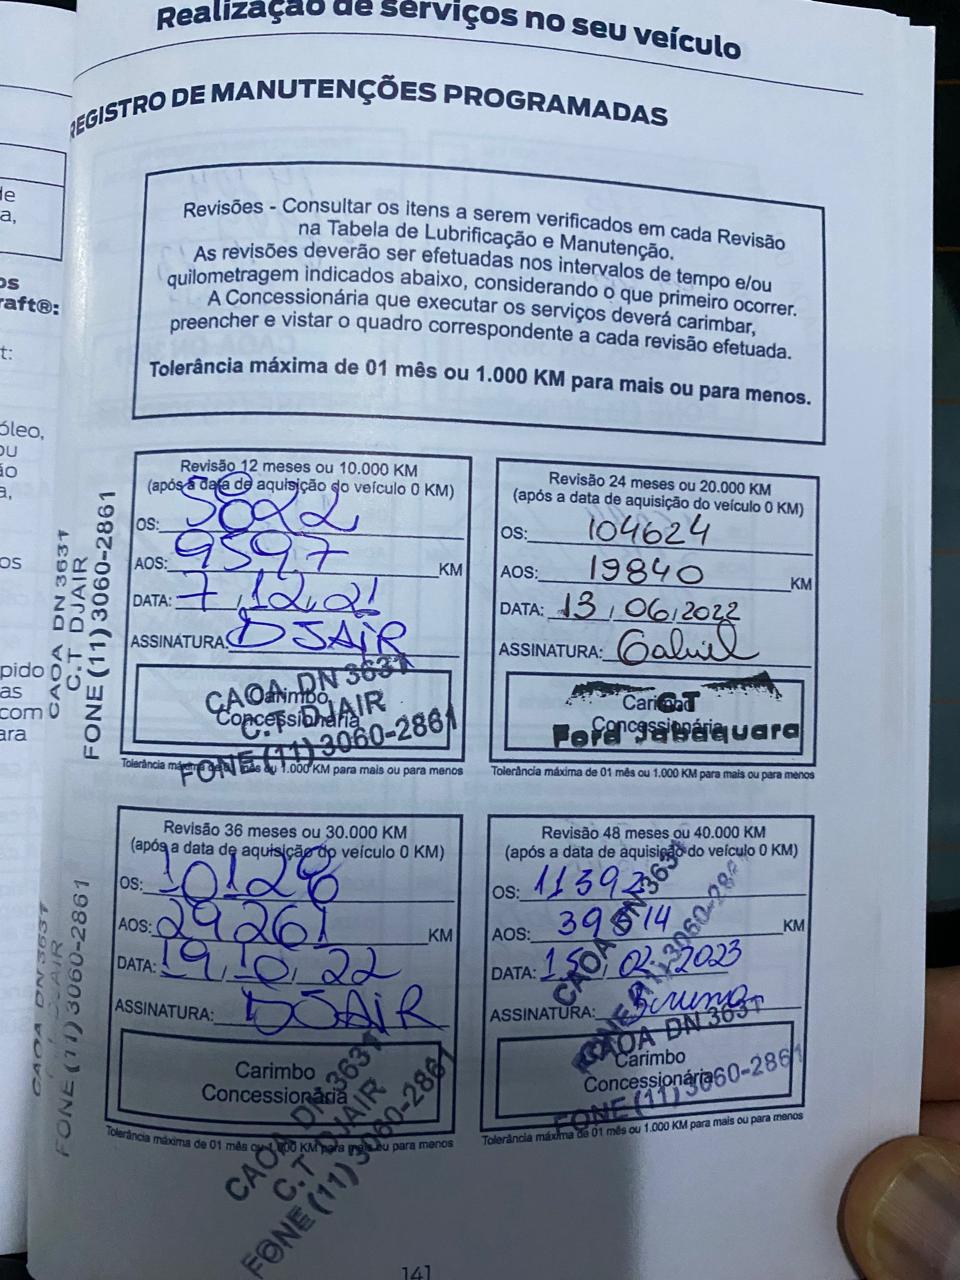 Realização de serviços no seu veículo
REGISTRO DE MANUTENÇÕES PROGRAMADAS
Revisões - Consultar os itens a serem verificados em cada Revisão
na Tabela de Lubrificação e Manutenção.
As revisões deverão ser efetuadas nos intervalos de tempo e/ou
quilometragem indicados abaixo, considerando o que primeiro ocorrer.
A Concessionária que executar os serviços deverá carimbar,
preencher e vistar o quadro correspondente a cada revisão efetuada.
Tolerância máxima de 01 mês ou 1.000 KM para mais ou para menos.
Revisão 12 meses ou 10.000 KM
(após a data de aquisição do veículo 0 KM)
OS:
AOS: 9597 KM
DATA: 7, 12, 21
ASSINATURA: DJAIR
Carimbo
Concessionária
CAOA DN 3631
C.T DJAIR
FONE (11) 3060-2861
Tolerância máxima de 01 mês ou 1.000 KM para mais ou para menos
CAOA DN 3631
C.T DJAIR
FONE (11) 3060-2861
Revisão 24 meses ou 20.000 KM
(após a data de aquisição do veículo 0 KM)
OS: 104624
AOS: 19840 KM
DATA: 13, 06, 2022
ASSINATURA: Gabriel
Carimbo
Concessionária
CT
Ford Jabaquara
Tolerância máxima de 01 mês ou 1.000 KM para mais ou para menos
Revisão 36 meses ou 30.000 KM
(após a data de aquisição do veículo 0 KM)
OS: 10128
AOS: 29261 KM
DATA: 19, 10, 22
ASSINATURA: DJAIR
Carimbo
Concessionária
CAOA DN 3631
C.T DJAIR
FONE (11) 3060-2861
Tolerância máxima de 01 mês ou 1.000 KM para mais ou para menos
CAOA DN 3631
FONE (11) 3060-2861
Revisão 48 meses ou 40.000 KM
(após a data de aquisição do veículo 0 KM)
OS: 11392
AOS: KM
DATA: 15, 02, 2023
ASSINATURA: Bruno
CAOA DN 3631
FONE (11) 3060-286
Carimbo
Concessionária
CAOA DN 3631
FONE (11) 3060-2861
Tolerância máxima de 01 mês ou 1.000 KM para mais ou para menos
141
óleo,
pido
as
com
ara